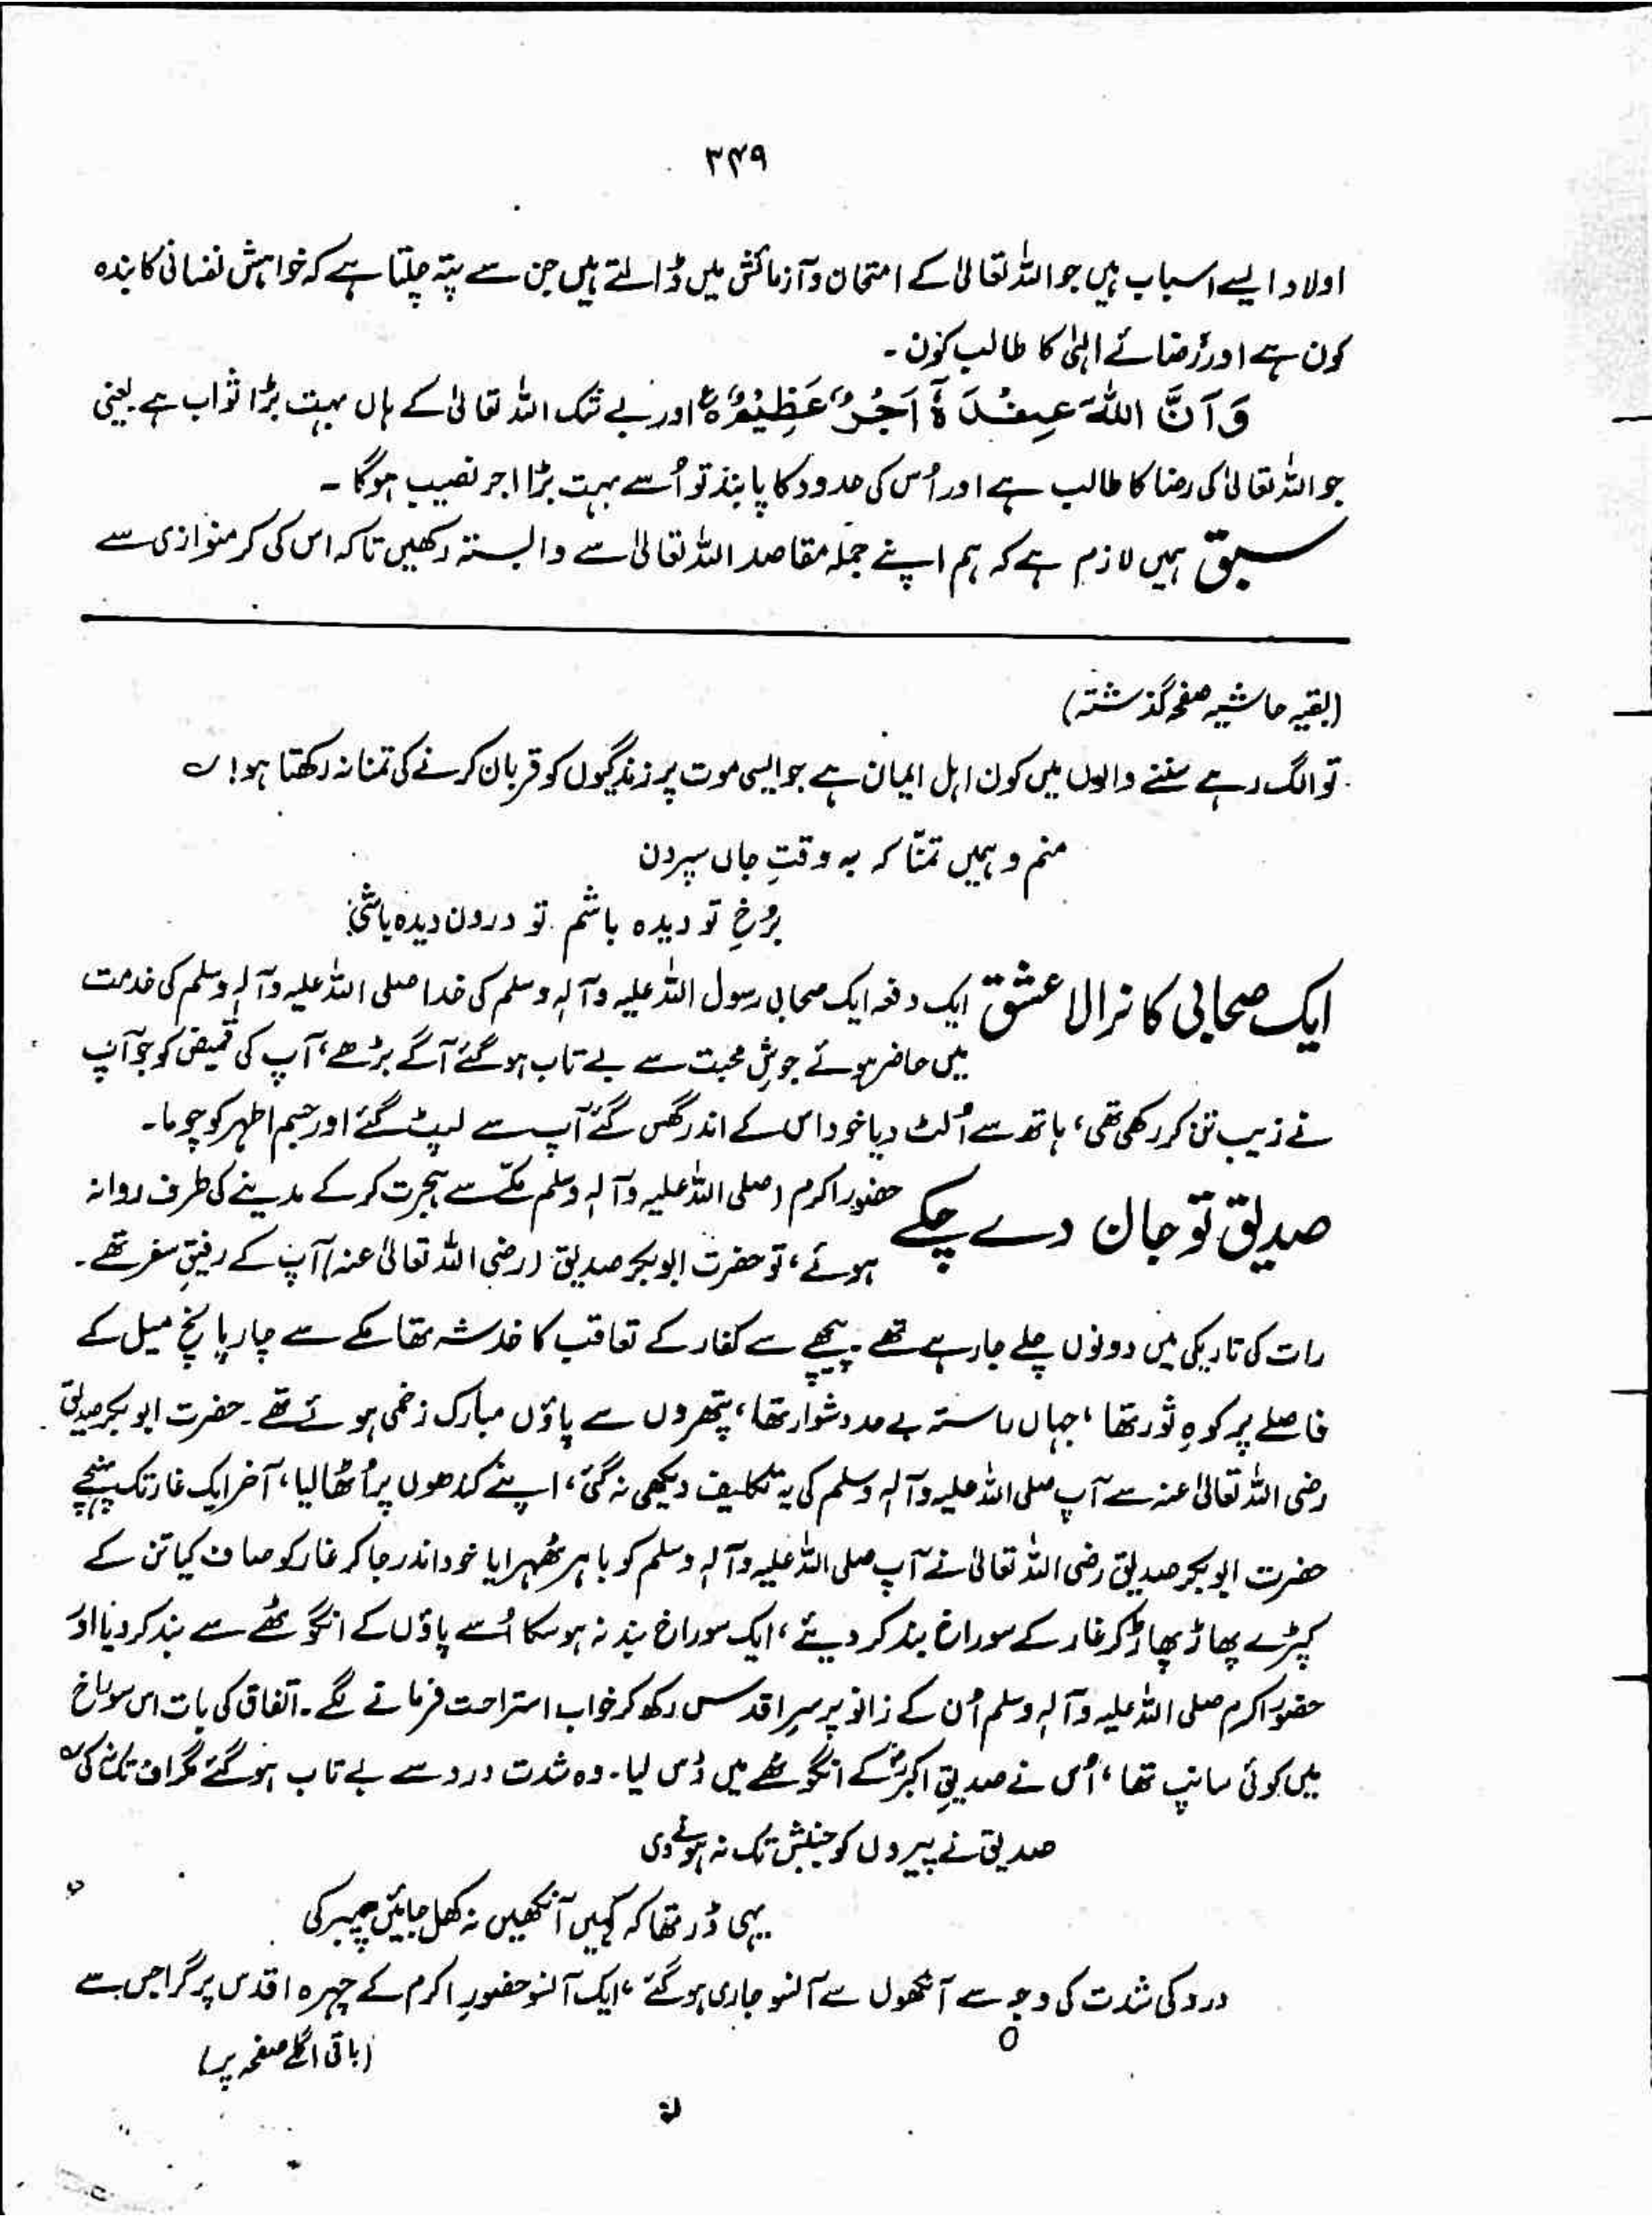 ۳۴۹
اولاد ایسے اسباب ہیں جو اللہ تعالیٰ کے امتحان و آزمائش میں ڈالتے ہیں جن سے پتہ چلتا ہے کہ خواہش نفسانی کا بندہ
کون ہے اور رضائے الہٰی کا طالب کون۔
وَ اَنَّ اللّٰهَ عِنْدَهٗٓ اَجْرٌ عَظِيْمٌ ۧ اور بے شک اللہ تعالیٰ کے ہاں بہت بڑا ثواب ہے یعنی
جو اللہ تعالیٰ کی رضا کا طالب ہے اور اُس کی حدود کا پابند تو اُسے بہت بڑا اجر نصیب ہوگا۔
سبق ہمیں لازم ہے کہ ہم اپنے جملہ مقاصد اللہ تعالیٰ سے وابستہ رکھیں تاکہ اس کی کرمنوازی سے
(بقیہ حاشیہ صفحہ گذشتہ)
تو الگ رہے سننے والوں میں کون اہل ایمان ہے جو ایسی موت پر زندگیوں کو قربان کرنے کی تمنا نہ رکھتا ہو! ؎
منم و ہمیں تمنّا کہ بہ وقتِ جاں سپردن
بَرُخِ تو دیدہ باشم تو درون دیدہ باشی
ایک صحابی کا نرالا عشق ایک دفعہ ایک صحابی رسول اللہ علیہ وآلہٖ وسلم کی خدا صلی اللہ علیہ وآلہٖ وسلم کی خدمت
میں حاضر ہوئے جوشِ محبت سے بے تاب ہوگئے آگے بڑھے، آپ کی قمیض کو جو آپ
نے زیب تن کر رکھی تھی، ہاتھ سے اُلٹ دیا خود اس کے اندر گھس گئے آپ سے لپٹ گئے اور جسم اطہر کو چوما۔
صدیق تو جان دے چکے حضور اکرم (صلی اللہ علیہ وآلہٖ وسلم مکّے سے ہجرت کرکے مدینے کی طرف روانہ
ہوئے، تو حضرت ابوبکر صدیق (رضی اللہ تعالیٰ عنہ) آپ کے رفیقِ سفر تھے۔
رات کی تاریکی میں دونوں چلے جارہے تھے پیچھے سے کفار کے تعاقب کا خدشہ تھا مکے سے چار پانچ میل کے
فاصلے پر کوہِ ثور تھا، جہاں راستہ بے حد دشوار تھا، پتھروں سے پاؤں مبارک زخمی ہوئے تھے۔ حضرت ابوبکر صدیق
رضی اللہ تعالیٰ عنہ سے آپ صلی اللہ علیہ وآلہٖ وسلم کی یہ تکلیف دیکھی نہ گئی، اپنے کندھوں پر اُٹھا لیا، آخر ایک غار تک پہنچے
حضرت ابوبکر صدیق رضی اللہ تعالیٰ نے آپ صلی اللہ علیہ وآلہٖ وسلم کو باہر ٹھہرایا خود اندر جاکر غار کو صاف کیا تن کے
کپڑے پھاڑ پھاڑ کر غار کے سوراخ بند کر دیئے، ایک سوراخ بند نہ ہوسکا اُسے پاؤں کے انگوٹھے سے بند کر دیا اور
حضور اکرم صلی اللہ علیہ وآلہٖ وسلم اُن کے زانو پر سرِ اقدس رکھ کر خواب استراحت فرمانے لگے۔ اتفاق کی بات اس سوراخ
میں کوئی سانپ تھا، اُس نے صدیقِ اکبرؓ کے انگوٹھے میں ڈس لیا۔ وہ شدت درد سے بے تاب ہوگئے مگر اف تک نہ کی ؎
صدیق نے پیروں کو جنبش تک نہ ہونے دی
یہی ڈر تھا کہ کہیں آنکھیں نہ کھل جائیں پیمبر کی
درد کی شدت کی وجہ سے آنکھوں سے آنسو جاری ہوگئے، ایک آنسو حضورِ اکرم کے چہرہ اقدس پر گرا جس سے
(باقی اگلے صفحہ پر)